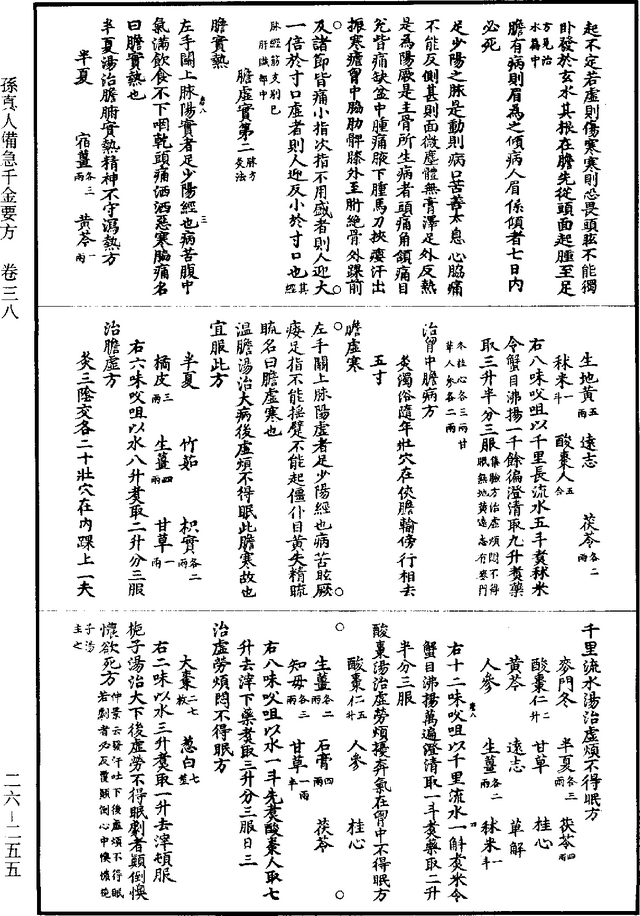 孫真人備急千金要方　卷三八
二六－二五五
起不定若虛則傷寒寒則恐畏頭眩不能獨
臥發於玄水其根在膽先從頭面起腫至足
方見治水篇中
膽有病則眉為之傾病人眉係傾者七日內
必死
足少陽之脉是動則病口苦善太息心脇痛
不能反側甚則面微塵體無膏澤足外反熱
是為陽厥是主骨所生病者頭痛角頷痛目
兌眥痛缺盆中腫痛腋下腫馬刀挾癭汗出
振寒瘧胷中脇肋髀膝外至胻絶骨外踝前
及諸節皆痛小指次指不用盛者則人迎大
一倍於寸口虛者則人迎反小於寸口也其經
脉經筋支別已
肝臟部中
膽虛實第二脉方灸法
膽實熱
左手關上脉陽實者足少陽經也病苦腹中
氣滿飲食不下咽乾頭痛洒洒惡寒脇痛名
曰膽實熱也
半夏湯治膽腑實熱精神不守瀉熱方
半夏　宿薑各三兩　黄芩一兩
生地黄五兩　遠志　茯苓各二兩
秫米一斗　酸棗人五合
右八味㕮咀以千里長流水五斗煮秫米
令蟹目沸揚一千餘徧澄清取九升煮藥
取三升半分三服集驗方治虛煩悶不得眠無地黄遠志有麥門
冬桂心各三兩甘草人參各二兩
治胷中膽病方
灸濁俗隨年壯穴在俠膽輸傍行相去
五寸
膽虛寒
左手關上脉陽虛者足少陽經也病苦眩厥
痿足指不能摇躄不能起僵仆目黄失精䀮
䀮名曰膽虛寒也
温膽湯治大病後虛煩不得眠此膽寒故也
宜服此方
半夏　竹茹　枳實各二兩
橘皮三兩　生薑四兩　甘草一兩
右六味㕮咀以水八升煮取二升分三服
治膽虛方
灸三陰交各二十壯穴在內踝上一夫
千里流水湯治虛煩不得眠方
麥門冬　半夏各三兩　茯苓四兩
酸棗仁二升　甘草　桂心
黄芩　遠志　萆解
人參　生薑各二兩　秫米一斗
右十二味㕮咀以千里流水一斛煮米令
蟹目沸揚萬遍澄清取一斗煮藥取二升
半分三服
酸棗湯治虛勞煩擾奔氣在胷中不得眠方
酸棗仁五升　人參　桂心
生薑各二兩　石膏四兩　茯苓
知母各三兩　甘草一兩半
右八味㕮咀以水一斗先煮酸棗人取七
升去滓下藥煮取三升分三服日三
治虛勞煩悶不得眠方
大棗二七枚　葱白七莖
右二味以水三升煮取一升去滓頓服
梔子湯治大下後虛勞不得眠劇者顛倒懊
憹欲死方仲景云發汗吐下後虛煩不得眠若劇者必反覆顛倒心中懊憹梔
子湯主之